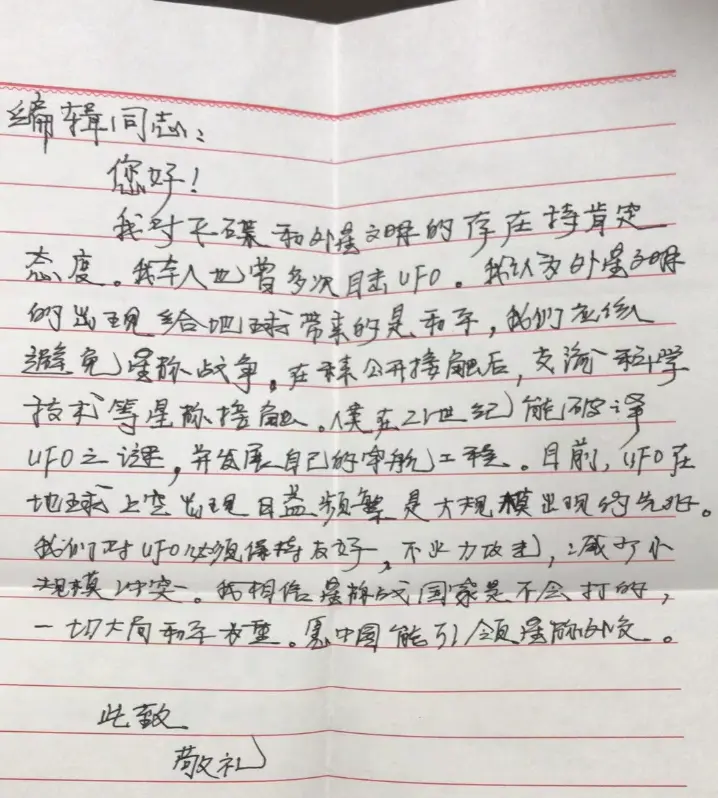 编辑同志：
您好！
我对飞碟和外星文明的存在持肯定
态度。我本人也曾多次目击UFO。我认为外星文明
的出现给地球带来的是和平，我们应该
避免星际战争。在未公开接触后，交流和科学
技术等星际接触。在21世纪能破译
UFO之谜，并发展自己的宇航工程。目前，UFO在
地球上空出现日益频繁是大规模出现的先兆。
我们对UFO必须保持友好，不火力攻击，减少小
规模冲突。我相信星际战国家是不会打的，
一切大局和平为重。愿中国能引领星际外交。
此致
敬礼